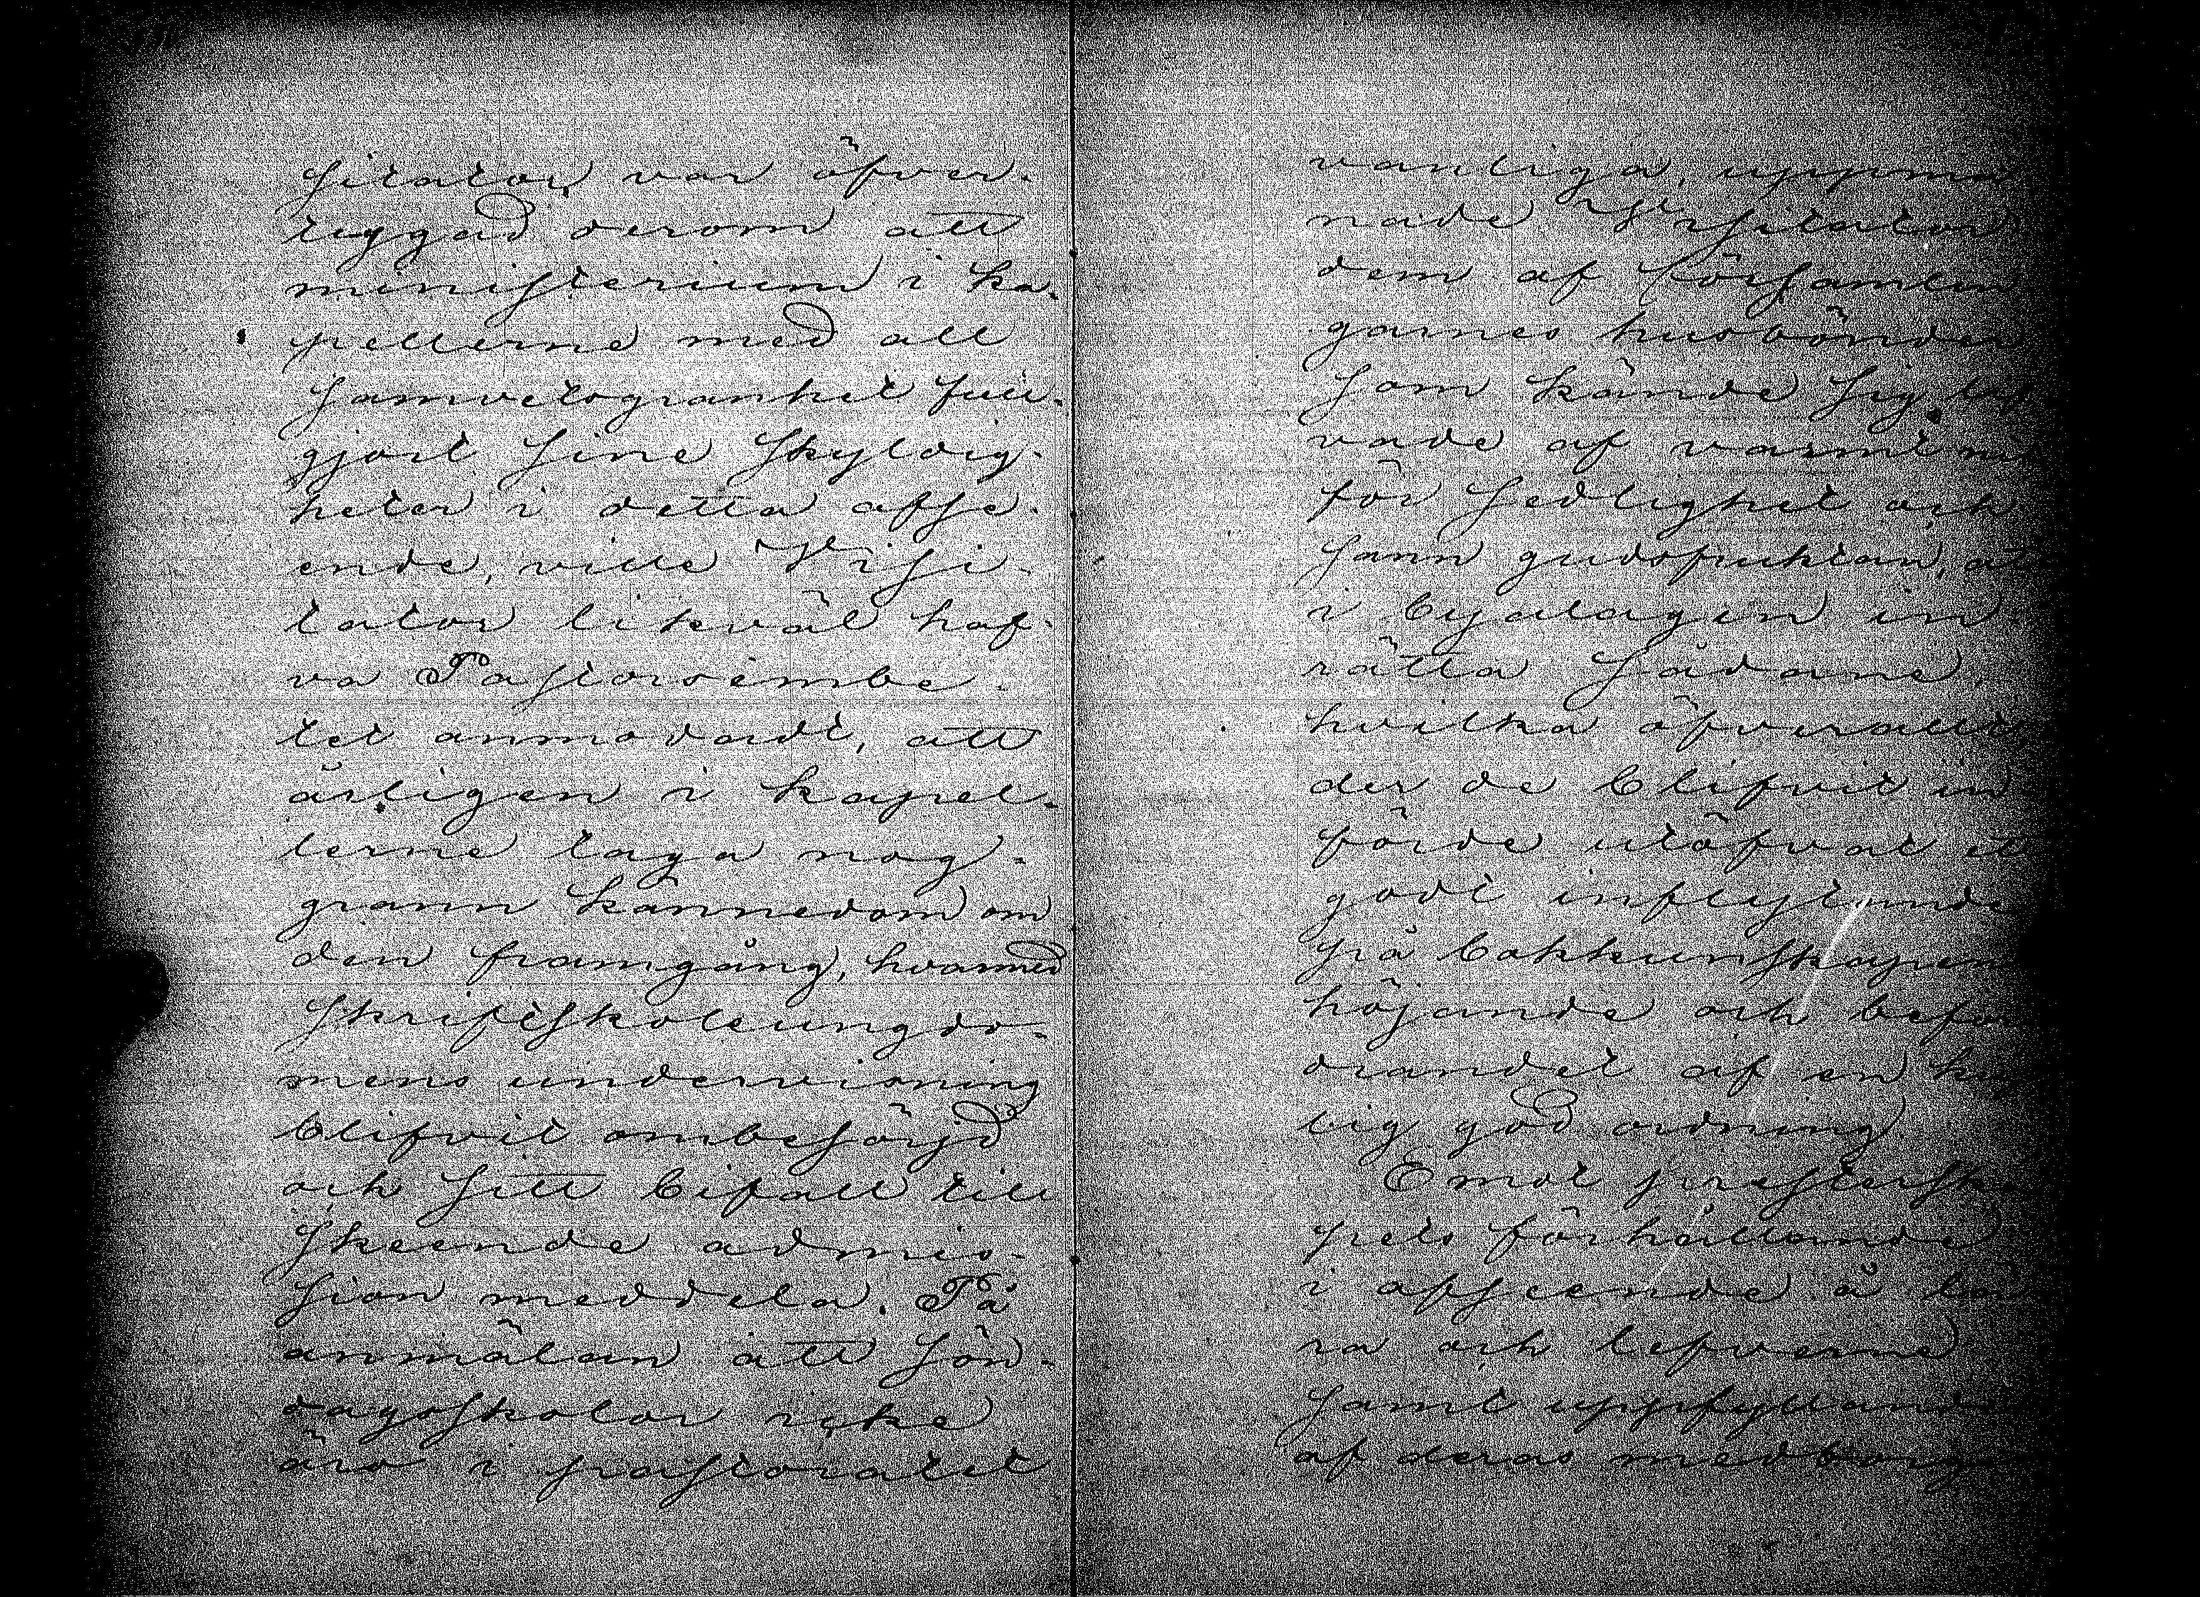 sitator, var öfver-
tyggad derom att
ministerium i ka-
pellerne med all
samvetsgranhet full-
gjort sine skyldig-
heter i detta afse-
ende, ville Visi-
tator likväl haf-
va Pastorsembe-
tet anmodadt, att
årligen i kapel-
lerne taga nog-
grann kännedom om
den framgång, hvarmed
skriftskoleungdo-
mens undervisning
blifvit ombesörjd
och sitt bifall till
skeende admis-
sion meddela. På
anmälan att sön-
dagsskolor icke
äro i pastoratet
vanliga, uppma
nade Visitator
dem af församlin
garnes husbönder
som kände sig lif
vade af varmt nit
för sedlighet och
sann gudsfruktan, att
i byalagen in
rätta sådane,
hvilka öfverallt,
der de blifvit in
förde utöfvat ett
godt inflytande
på bokkunskapens
höjande och befor
drandet af en
lig god ordning.
Emot presterska
pets förhållande
i afseende å lä
ra och lefverne
samt uppfyllande
af deras medborg